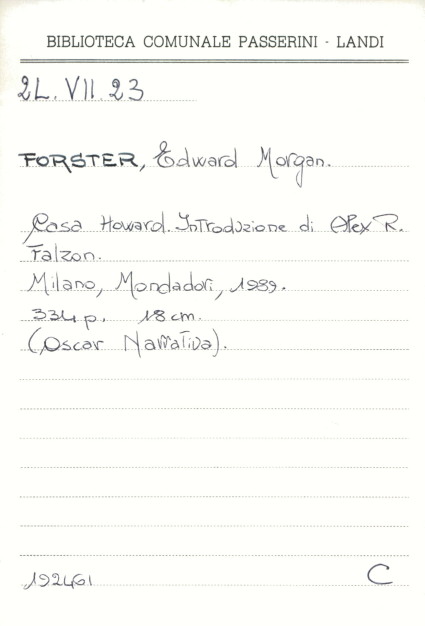 BIBLIOTECA COMUNALE PASSERINI - LANDI
2L. VII. 23
FORSTER, Edward Morgan.
Casa Howard. Introduzione di Alex R.
Falzon.
Milano, Mondadori, 1989.
334 p. 18 cm.
(Oscar Narrativa).
192461 C